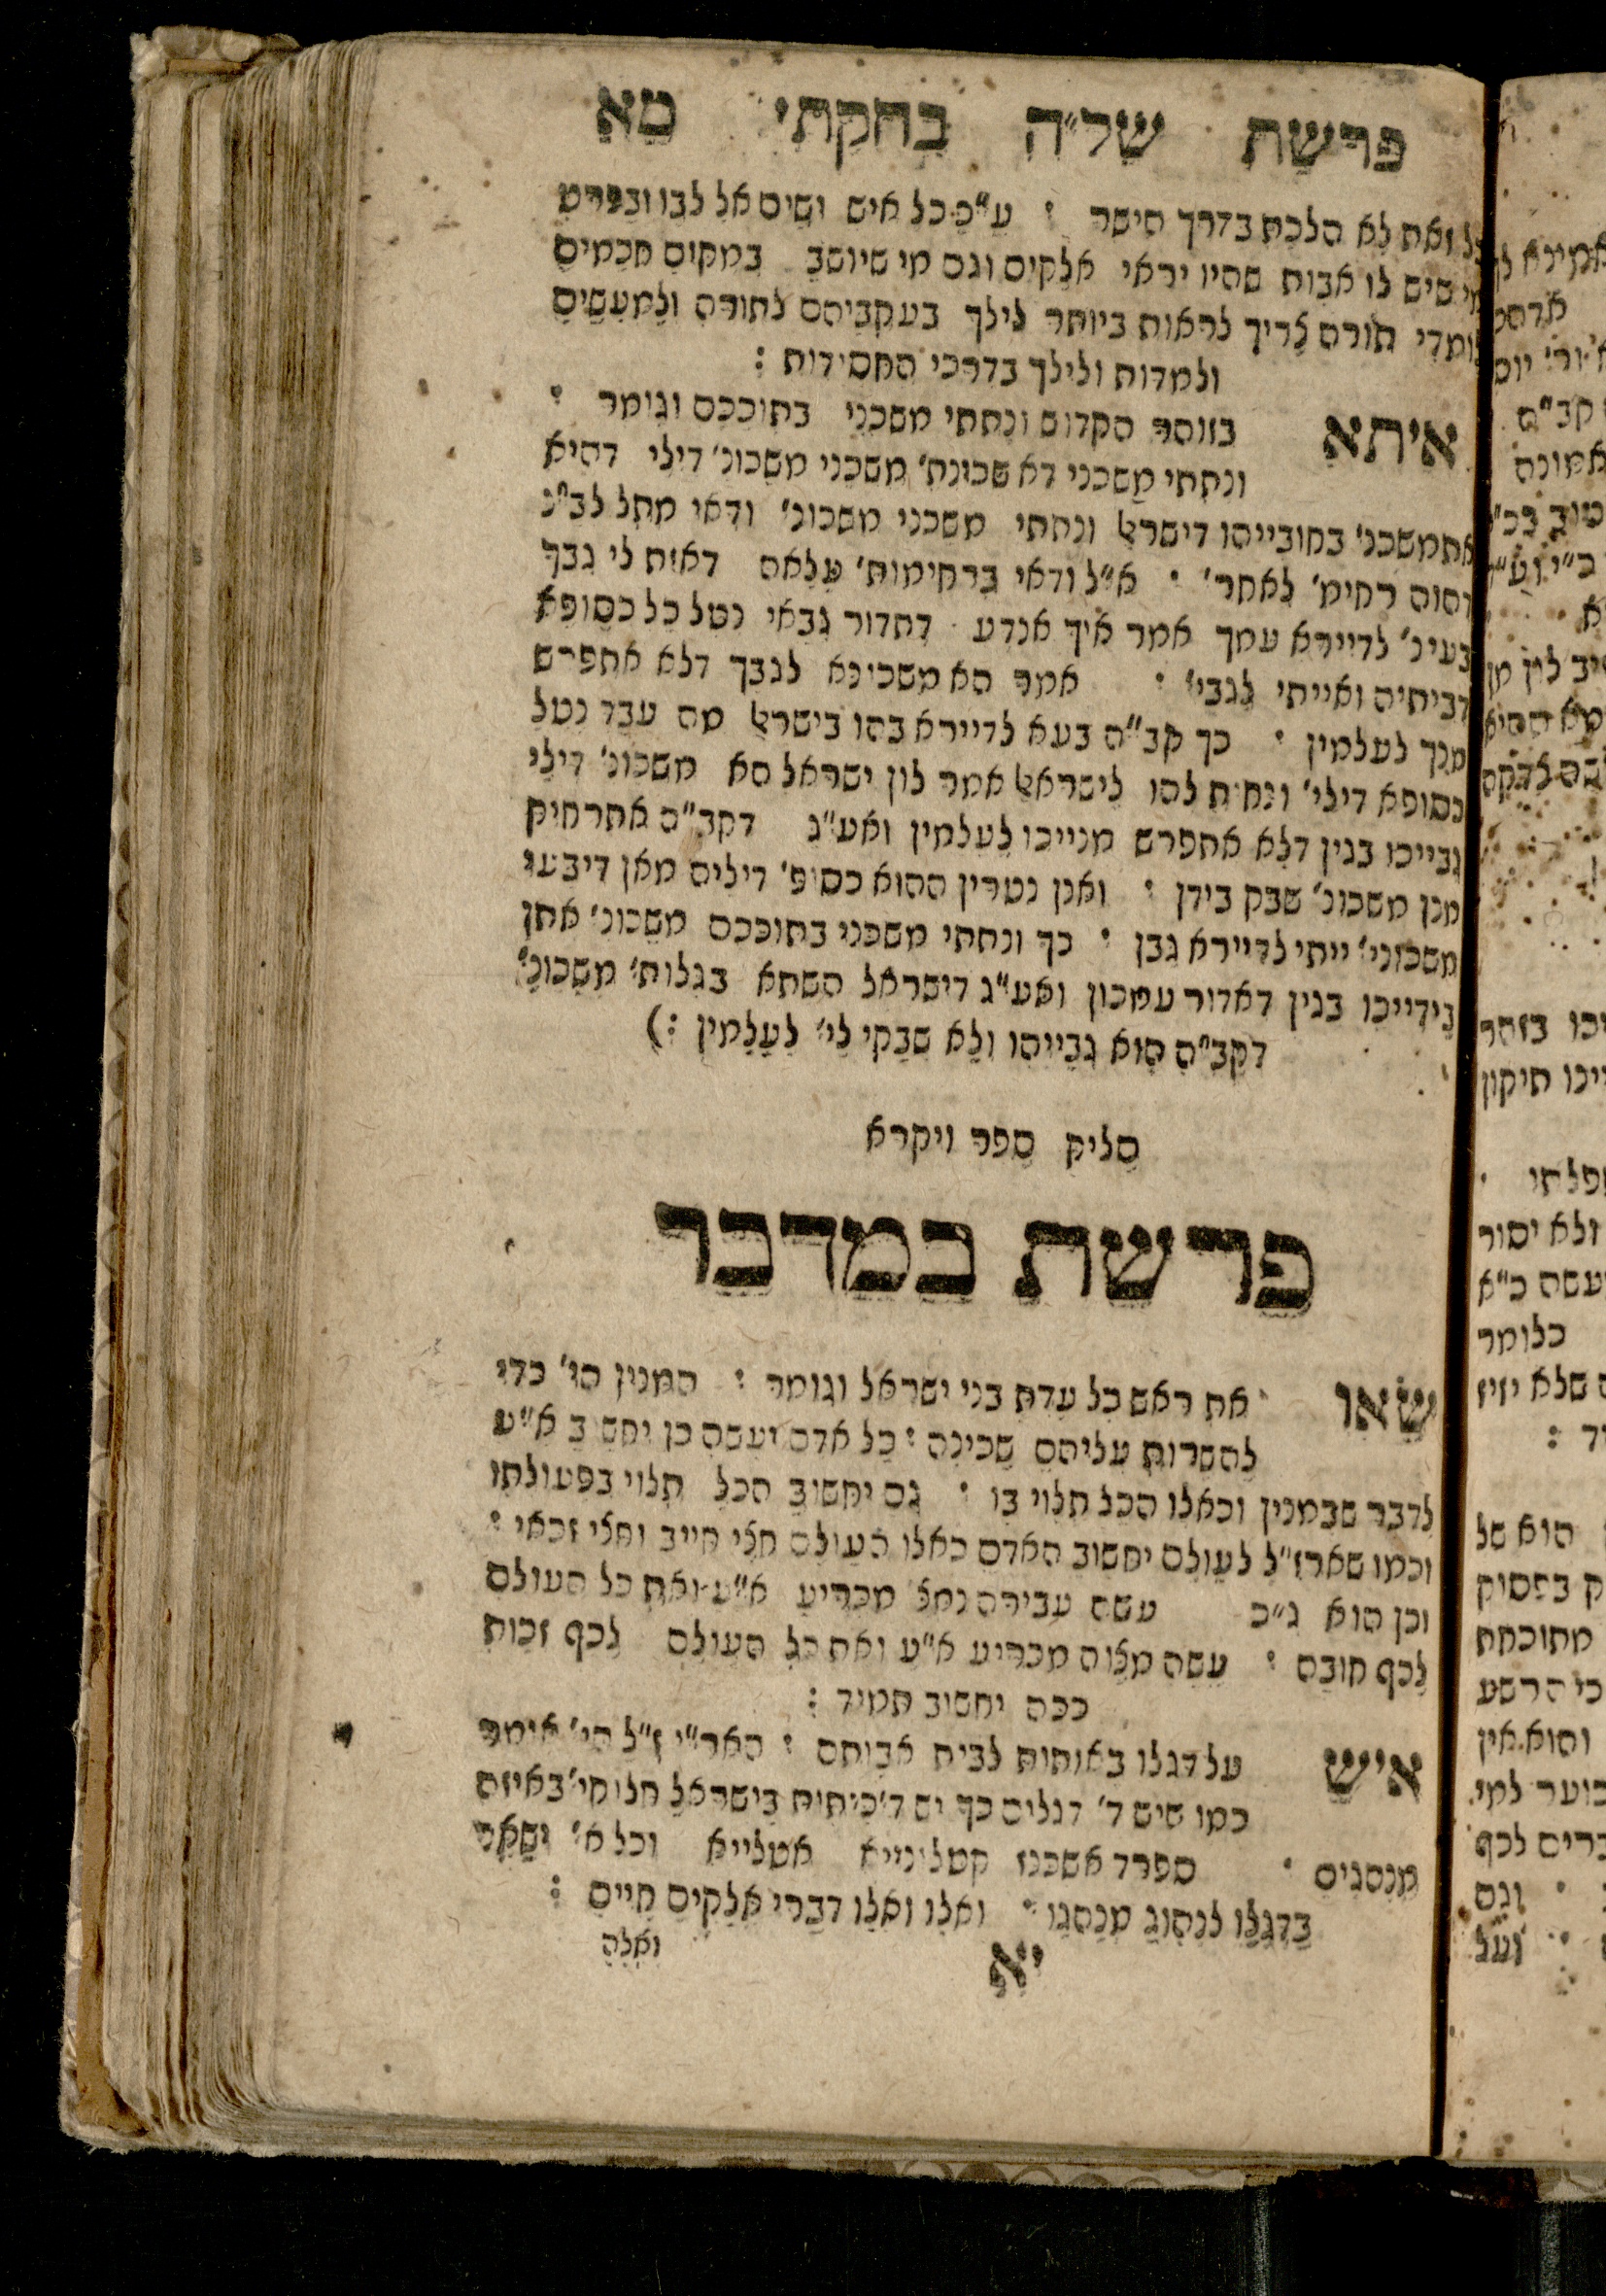 פרשת של״ה בחקתי מא
כל זאת לא הלכת בדרך הישר : ע״כ כל איש ישים אל לבו ובפרט
מי שיש לו אבות שהיו יראי אלקים וגם מי שיושב במקום חכמים
לומדי תורה צריך לראות ביותר לילך בעקביהם לתורה ולמעשים
ולמדות ולילך בדרכי החסידות :
איתא בזוהר הקדוש ונתתי משכני בתוככם וגומר :
ונתתי משכני דא שכונת׳ משכני משכונ׳ דילי דהיא
אתמשכנ׳ בחובייהו דישראל ונתתי משכני משכונ׳ ודאי מתל לב״נ
דהוה רחימ׳ לאחר׳ : א״ל ודאי ברחימות׳ עלאה דאית לי גבך
בעינ׳ לדיירא עמך אמר איך אנדע דתדור גבאי נטל כל כסופא
דביתיה ואייתי לגבי׳ : אמר הא משכינא לגבך דלא אתפרש
מנך לעלמין : כך קב״ה בעא לדיירא בהו בישראל מה עבד נטל
כסופא דילי׳ ונחית להו לישראל אמר לון ישראל הא משכונ׳ דילי
גבייכו בגין דלא אתפרש מנייכו לעלמין ואע״ג דקב״ה אתרחיק
מנן משכונ׳ שבק בידן : ואנן נטרין ההוא כסופ׳ דיליה מאן דיבעי
משכוני׳ ייתי לדיירא גבן : כך ונתתי משכני בתוככם משכונ׳ אתן
בידייכו בגין דאדור עמכון ואע״ג דישראל השתא בגלות׳ משכונ׳
דקב״ה הוא גבייהו ולא שבקי לי׳ לעלמין :)
סליק ספר ויקרא
פרשת במדבר
שאו את ראש כל עדת בני ישראל וגומר : המנין הי׳ כדי
להשרות עליהם שכינה : כל אדם יעשה כן יחשב א״ע
לדבר שבמנין וכאלו הכל תלוי בו : גם יחשוב הכל תלוי בפעולתו
וכמו שארז״ל לעולם יחשוב האדם כאלו העולם חלי חייב וחלי זכאי :
וכן הוא ג״כ עשה עבירה נמצ׳ מכריע א״ע ואת כל העולם
לכף חובה : עשה מצוה מכריע א״ע ואת כל העולם לכף זכות
ככה יחשוב תמיד :
איש על דגלו באותות לבית אבותם : האר״י ז״ל הי׳ אומר
כמו שיש ד׳ דגלים כך יש ד׳ כיתות בישראל חלוקי׳ באיזה
מנהגים : ספרד אשכנז קטלונייא אטלייא וכל א׳ ישאר
בדגלו לנהוג מנהגו : ואלו ואלו דברי אלקים חיים :
יא ואלה